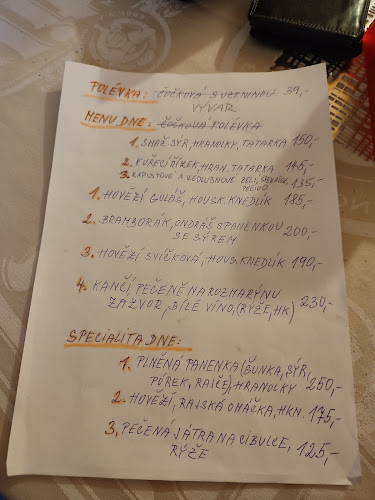 POLÉVKA: ČOČKOVÁ S UZENINOU 39,-
VÝVAR
MENU DNE: ČOČKOVÁ POLÉVKA
1. SMAŽ SÝR, HRANOLKY, TATARKA 150,-
2. KUŘECÍ ŘÍZEK, HRAN. TATARKA 145,-
3. KAPUSTOVÉ A KEDLUBNOVÉ ZELÍ, 135,-
PEČIVO
1. HOVĚZÍ GULÁŠ, HOUSK. KNEDLÍK 185,-
2. BRAMBORÁK, ONDRÁŠ S PANENKOU 200,-
SE SÝREM
3. HOVĚZÍ SVÍČKOVÁ, HOUS. KNEDLÍK 190,-
4. KANČÍ, PEČENĚ NA ROZMARÝNU
ZÁZVOR, BÍLÉ VÍNO, (RÝŽE, HK) 230,-
SPECIALITA DNE:
1. PLNĚNÁ PANENKA (ŠUNKA, SÝR,
PÓREK, RAJČE) HRANOLKY 250,-
2. HOVĚZÍ, RAJSKÁ OMÁČKA, HKN. 175,-
3. PEČENÁ JÁTRA NA CIBULCE, 125,-
RÝŽE